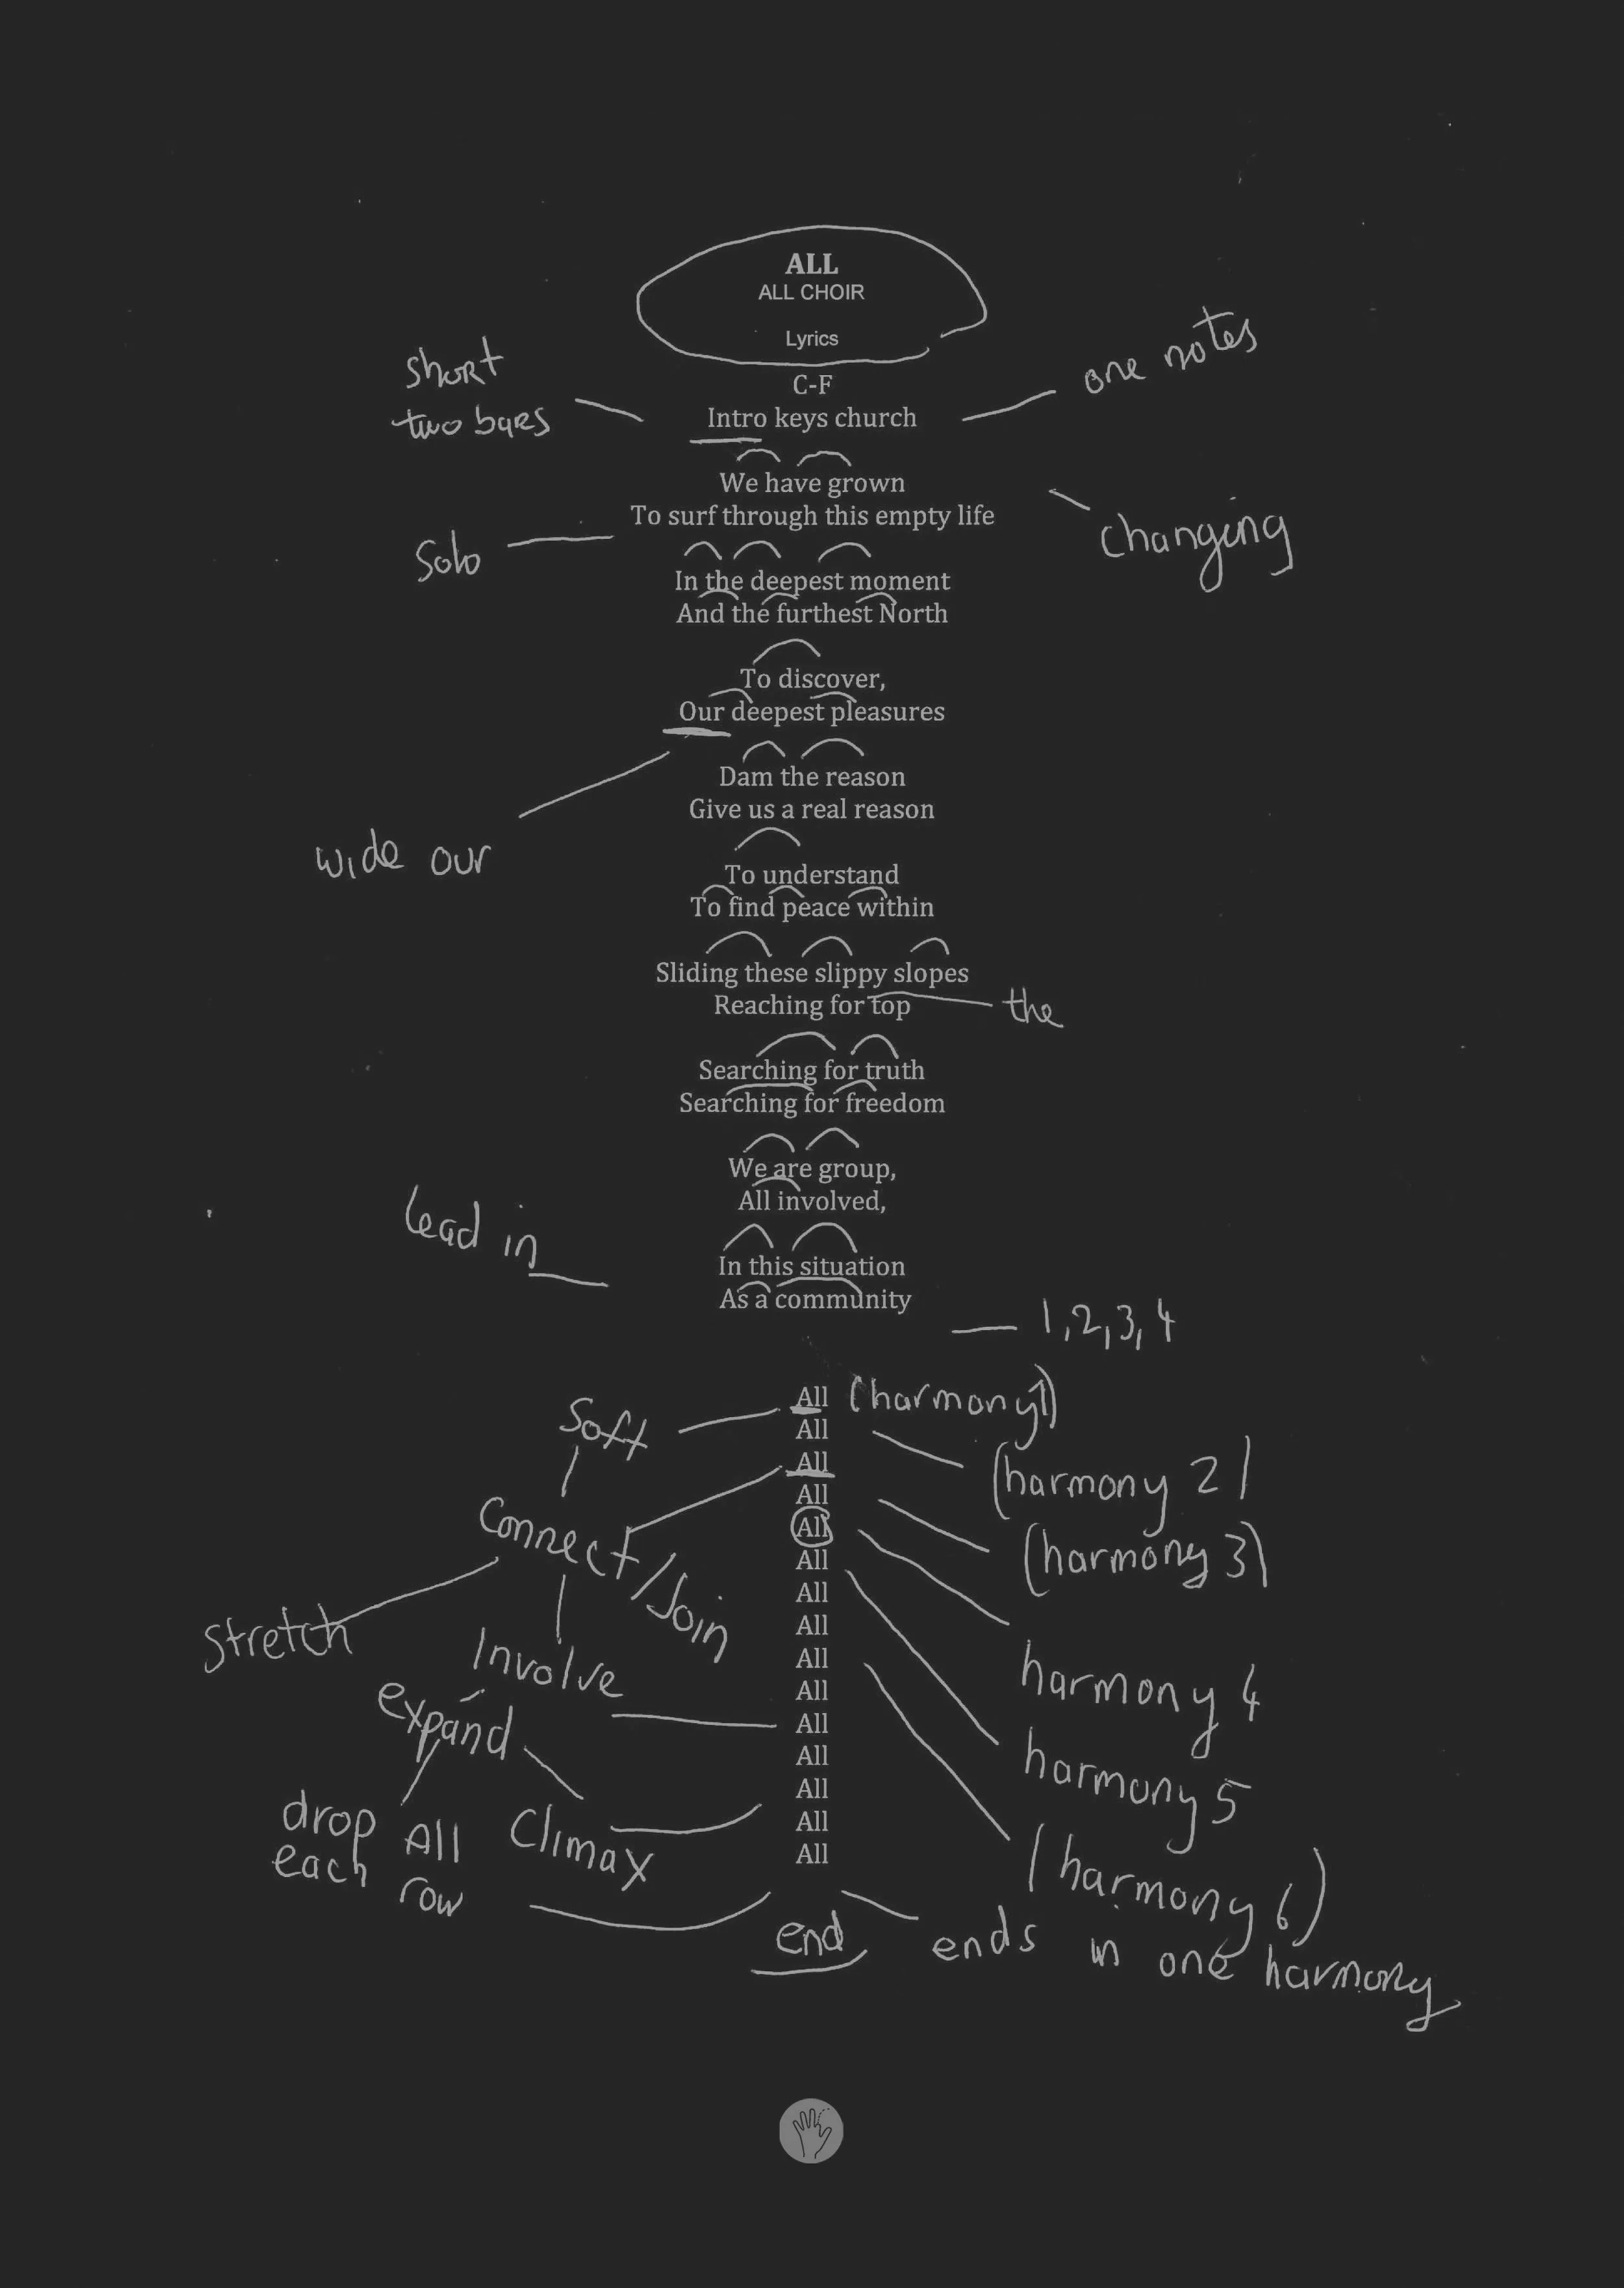 ALL
ALL CHOIR
Lyrics
C-F
Intro keys church
short
two bars
one notes
We have grown
To surf through this empty life
Solo
changing
In the deepest moment
And the furthest North
To discover,
Our deepest pleasures
wide our
Dam the reason
Give us a real reason
To understand
To find peace within
Sliding these slippy slopes
Reaching for top
the
Searching for truth
Searching for freedom
We are group,
All involved,
lead in
In this situation
As a community
1,2,3,4
All (harmony 1)
All
All
All
All
All
All
All
All
All
All
All
All
All
All
Soft
Connect/Join
Stretch
Involve
expand
Climax
drop All
each row
(harmony 2)
(harmony 3)
harmony 4
harmony 5
(harmony 6)
end
ends in one harmony